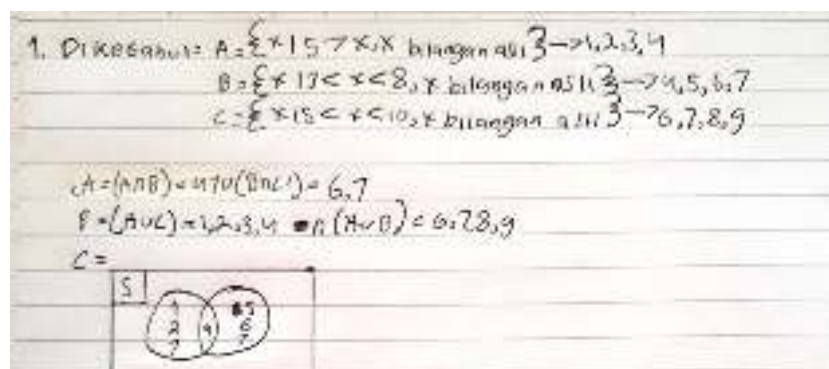 1. Diketahui= A={x|5>x,x bilangan asli}→1,2,3,4
B={x|3<x<8,x bilangan asli}→4,5,6,7
C={x|5<x<10,x bilangan asli}→6,7,8,9
A=(A∩B)=4}∪(B∩C)=6,7
B=(A∪C)=1,2,3,4 (A∪B)=6,7,8,9
C=
S
1 5
2 4 6
7